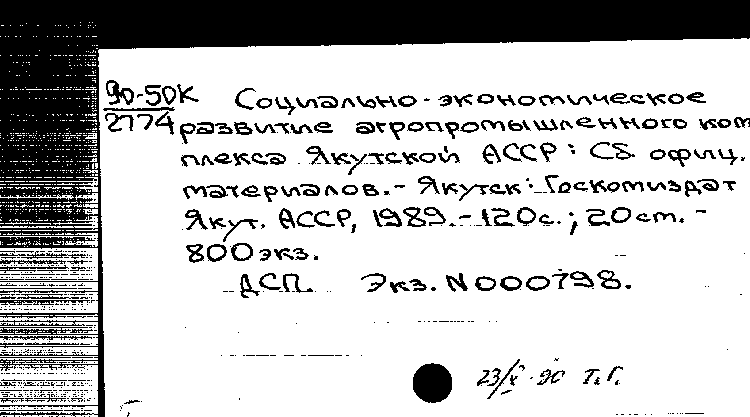 90-50К Социально-экономическое
2774 развитие агропромышленного ком
плекса Якутской АССР: Сб. офиц.
материалов.- Якутск: Госкомиздат
Якут. АССР, 1989.-120с.; 20см.-
800экз.
ДСП. Экз. N000798.
23/X-90 Т.Г.